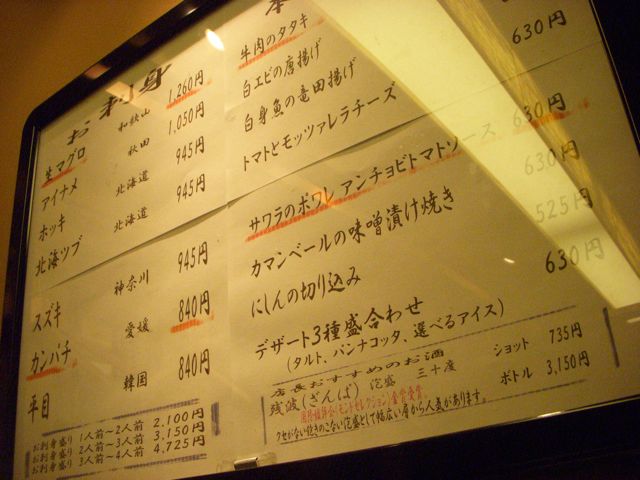 お刺身
生マグロ 和歌山 1,260円
アイナメ 秋田 1,050円
ホッキ 北海道 945円
北海ツブ 北海道 945円
スズキ 神奈川 945円
カンパチ 愛媛 840円
平目 韓国 840円
お刺身盛り 1人前〜2人前 2,100円
お刺身盛り 2人前〜3人前 3,150円
お刺身盛り 3人前〜4人前 4,725円
本
牛肉のタタキ
白エビの唐揚げ 630円
白身魚の竜田揚げ
トマトとモッツァレラチーズ 630円
サワラのポワレ アンチョビトマトソース 630円
カマンベールの味噌漬け焼き 525円
にしんの切り込み 630円
デザート3種盛合わせ
(タルト、パンナコッタ、選べるアイス)
店長おすすめのお酒
残波(ざんぱ) 泡盛 三十度 ショット 735円
ボトル 3,150円
国際(モンドセレクション)金賞受賞。
クセがない泡盛として幅広い層から人気があります。